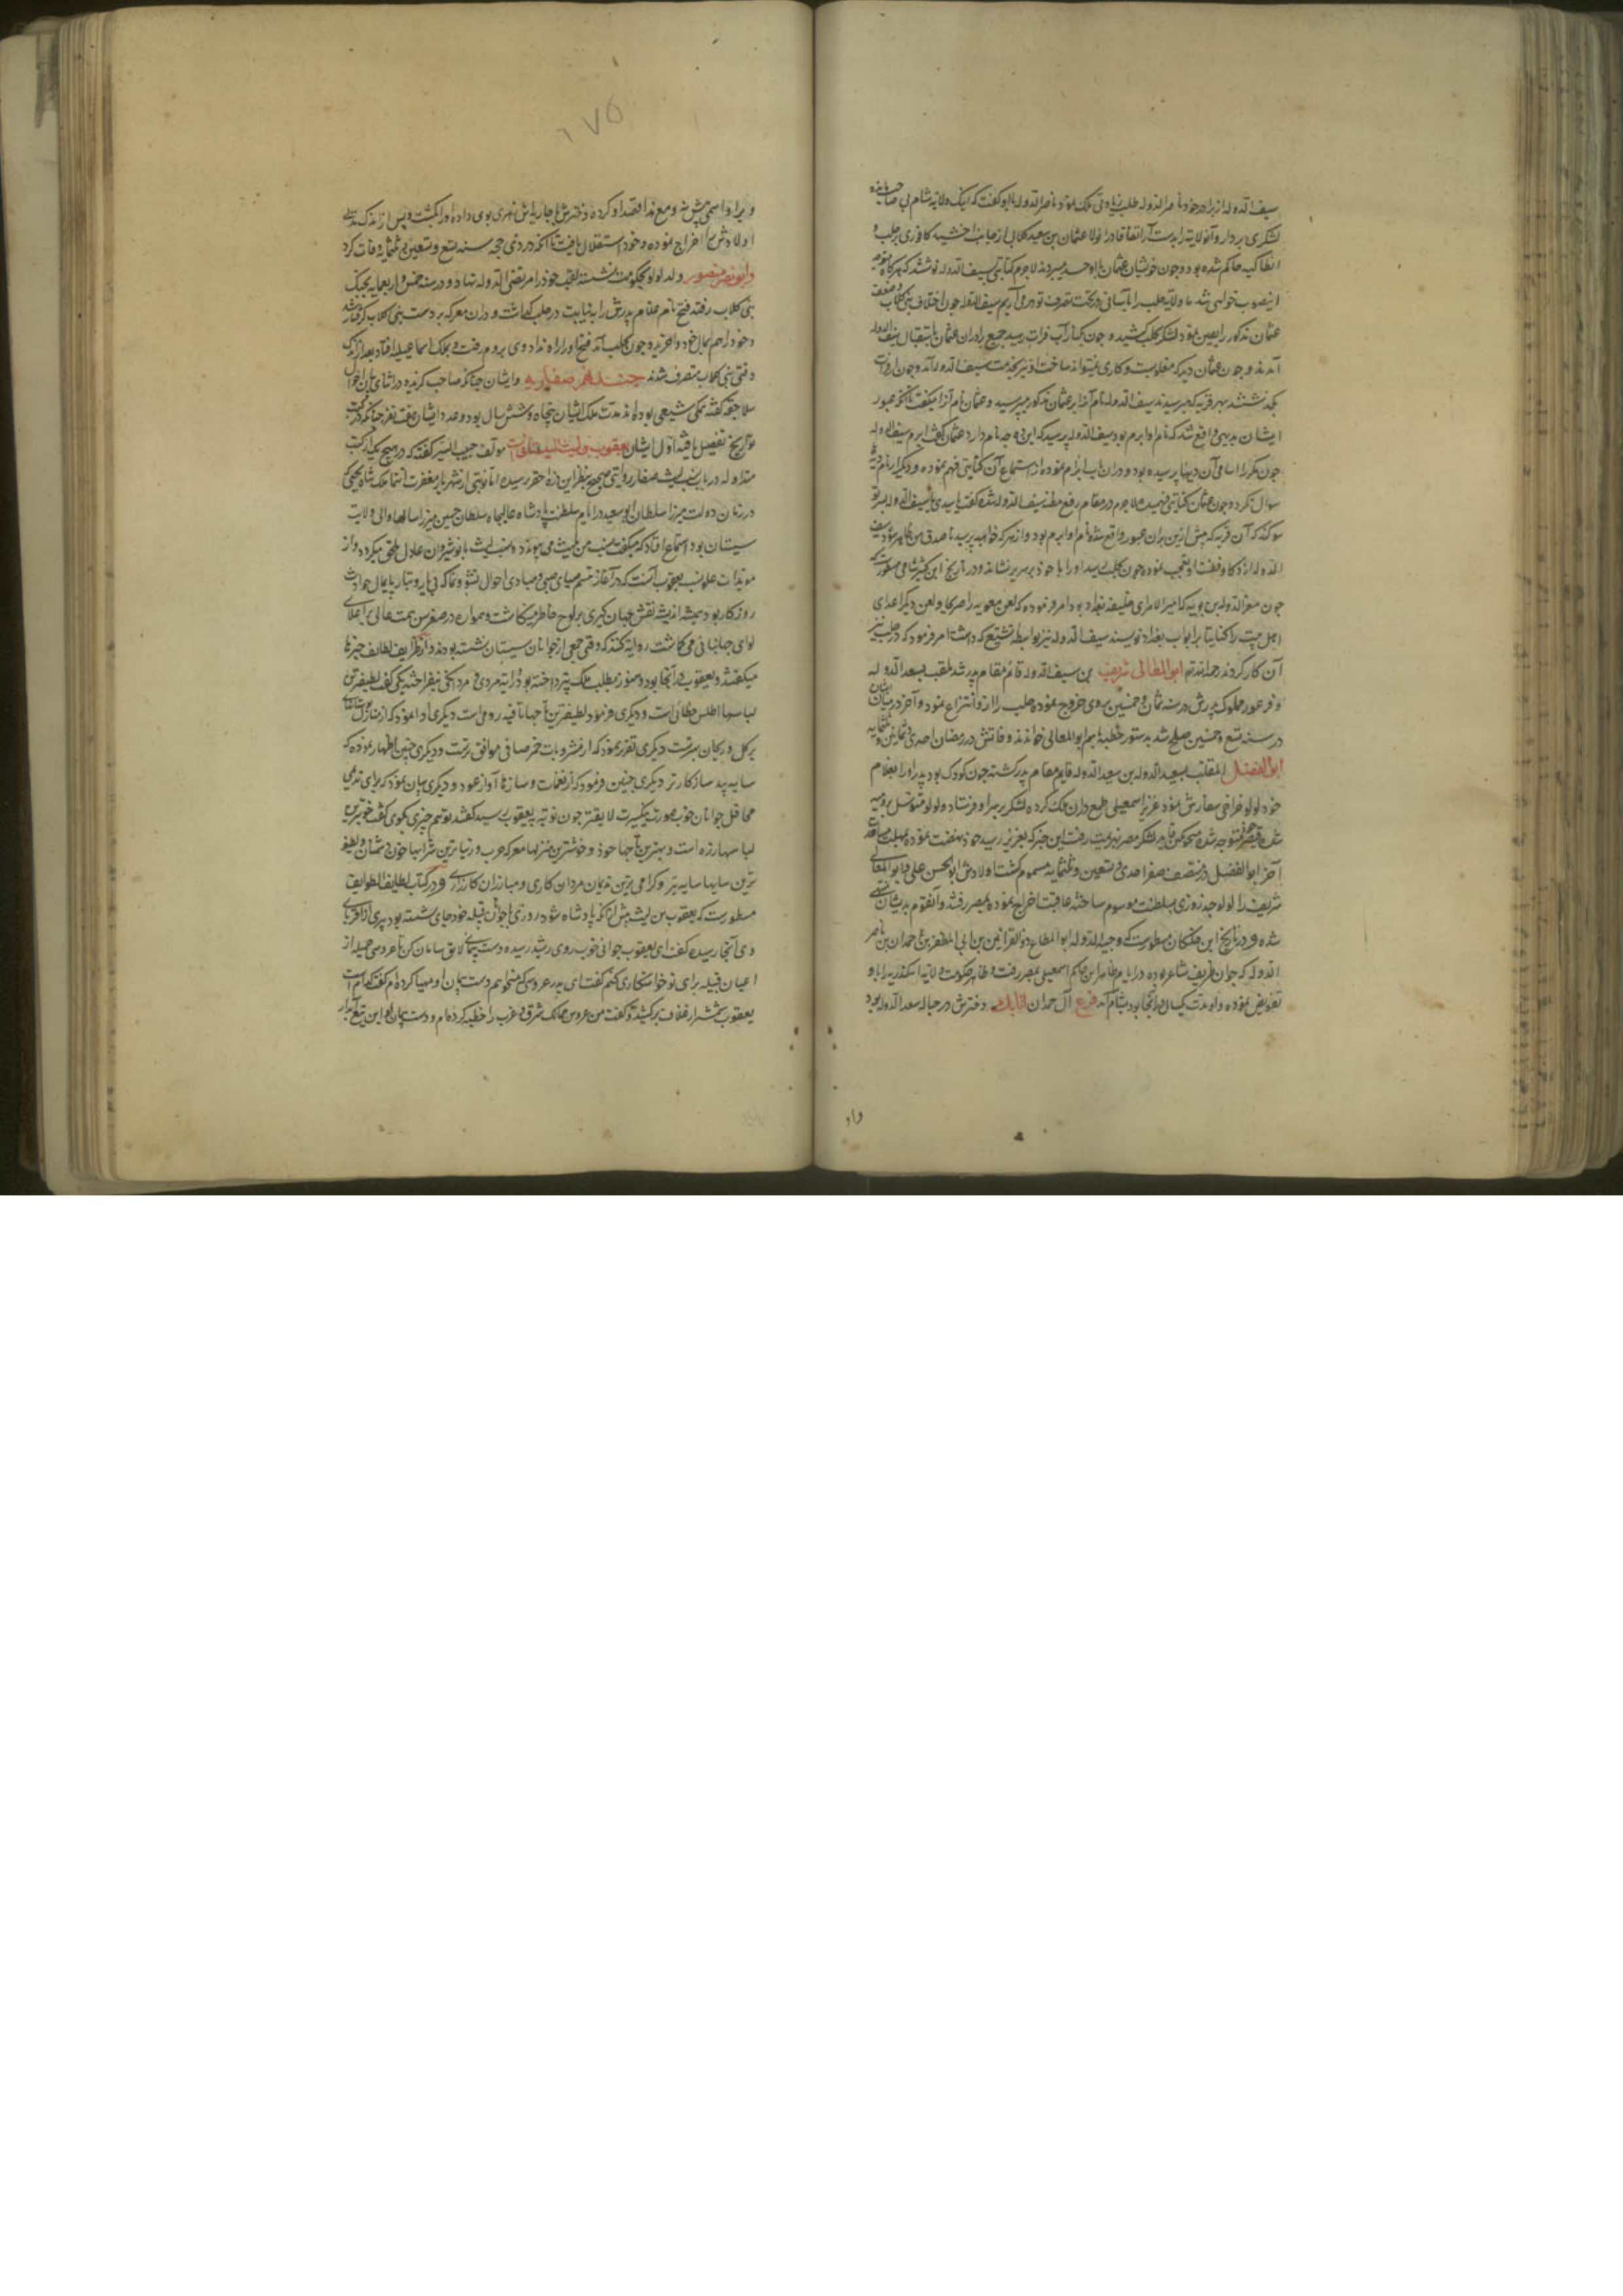 سیف الدوله از برادر خود ناصر الدوله طلب زیادتی ملک نمود ناصر الدوله با او گفت که اینک ولایة شام بی صاحب مانده
لشکری بردار و آن ولایة را بدست آر اتفاقا در آن ولا عثمان بن سعید کلابی از جانب اخشید کافوری بر حلب و
انطاکیه حاکم شده بود و چون خویشان عثمان با او حسد میبردند لاجرم کتابتی بسیف الدوله نوشتند که هرگاه متوجه
اینصوب خواهی شد ما ولایة حلب را بآسانی در تحت تصرف تو درمی آریم سیف الدوله چون اختلاف بنی کلاب و ضعف
عثمان مذکور را یقین نمود لشکر بحلب کشید و چون بکنار آب فرات رسید جمیع برادران عثمان باستقبال سیف الدوله
آمدند و چون عثمان دید که مغلوبست و کاری نمیتواند ساخت او نیز بخدمت سیف الدوله آمد و چون از فرات
بگذشتند بهر قریه که میرسیدند سیف الدوله نام آنرا از عثمان مذکور میپرسید و عثمان نام آنرا میگفت تا آنکه عبور
ایشان بدیهی واقع شد که نام او ابرم بود سیف الدوله پرسید که این ده چه نام دارد عثمان گفت ابرم سیف الدوله
چون مکرر اسامی آن دیهها پرسیده بود و در آن باب ابرام نموده از استماع آن کنایتی فهم نموده و دیگر از نام دیه
سوال نکرد و چون عثمان کنایتی فهمیده لاجرم در مقام رفع مظنه سیف الدوله شده گفت یا سیدی یا سیف الدوله بسر تو
سوگند که آن قریه که پیش ازین بر آن عبور واقع شد نام او ابرم بود و از هر که خواهید بپرسید تا صدق من ظاهر شود سیف
الدوله از ذکا و فطنت او تعجب نموده چون بحلب رسید او را با خود بر سریر نشاند و در تاریخ ابن کثیر شامی مسطورست که
چون معز الدوله بن بویه که امیر الامرای خلیفه بغداد بود امر فرموده که لعن معویه را صریحا و لعن دیگر اعدای
اهل بیت را کنایتا بر ابواب بغداد نویسند سیف الدوله نیز بواسطه تشیع که داشت امر فرمود که در حلب نیز
آن کار کردند رحمه الله ابو المعالی شریف بن سیف الدوله قائم مقام پدر شد ملقب بسعد الدوله
و فرعویه مملوک پدرش در سنه ثمان و خمسین بروی خروج نموده حلب را ازو انتزاع نمود و آخر در میان ایشان
در سنه تسع و خمسین صلح شد بدستور خطبه بنام ابو المعالی خواندند وفاتش در رمضان احدی و ثمانین و ثلثمایه
ابو الفضل الملقب بسعید الدوله بن سعد الدوله قایم مقام پدر گشته چون کودک بود پدر او را بغلام
خود لولو خراجی سفارش نمود عزیز اسمعیلی طمع در آن ملک کرده لشکر بر سر او فرستاد و لولو متوسل بروسیه
شده قیصر متوجه شده منجوتکین قاید لشکر مصر بهزیمت رفت این خبر که بعزیز رسید خود نهضت نموده
آخر ابو الفضل در منتصف صفر احدی و تسعین و ثلثمایه مسموم گشت اولادش ابو الحسن علی و ابو المعالی
شریف را لولو چند روزی بسلطنت موسوم ساخته عاقبت اخراج نموده بمصر رفتند و آنقوم بدیشان منتهی
شده و در تاریخ ابن خلکان مسطورست که وجیه الدوله ابو المطاع ذو القرنین بن ابی المظفر بن حمدان بن ناصر
الدوله که جوان ظریف شاعر بوده در ایام ظاهر بن حاکم اسمعیلی بمصر رفت و ظاهر حکومت ولایة اسکندریه را باو
تفویض نموده و او مدت یکسال در آنجا بود بشام آمد فرع آل حمدان دخترش در حباله سعد الدوله بود
واو
۱۷۵
و برادر اسمی پیش نه و مع هذا قصد او کرده دخترش با جاریه اش زهری بوی داده او را بکشت و پس از اندک مدتی
اولادش را اخراج نموده و خود استقلال یافت تا آنکه در ذی حجه سنه تسع و تسعین و ثلثمایة وفات کرد
و ابو نصر منصور ولد لولو بحکومت نشسته لقب خود را مرتضی الدوله نهاد و در سنه خمس و اربعمایه بجنگ
بنی کلاب رفته فتح نام غلام پدرش را به نیابت در حلب گذاشت و در آن معرکه بر دست بنی کلاب گرفتار شد
و خود را هم بمال خود واخرید و چون بحلب آمد فتح او را راه نداد وی بروم رفت و بجنگ اسماعیلیه افتاد بعد از اندک
وقتی بنی کلاب متصرف شدند جند دهم صفاریه و ایشان چنانکه صاحب گزیده در اثنای بیان احوال
سلاجقه گفته همگی شیعی بوده اند مدت ملک ایشان پنجاه و شش سال بود و عدد ایشان هفت نفر چنانکه در کتب
تواریخ تفصیل یافته اول ایشان یعقوب بن لیث السیستانیست مولف حبیب السیر گفته که در هیچ یک از کتب
متداوله در باب نسب لیث صفار روایتی صحیح بنظر این ذره حقیر نرسیده اما نوبتی از شهریار مغفرت انتما ملک شاه یحیی که
در زمان دولت میرزا سلطان ابو سعید و در ایام سلطنت پادشاه عالیجاه سلطان حسین میرزا سالها والی ولایت
سیستان بود استماع افتاد که میگفت نسب من بلیث می پیوندد و نسب لیث بانوشیروان عادل ملحق میگردد و از
مویدات علو نسب یعقوب آنست که در آغاز تبسم صبای صبی و مبادی احوال نشو و نما که بی یار و تبار پایمال حوادث
روزگار بود همیشه اندیشه نقش جهان گیری بر لوح خاطر مینگاشت و همواره در صغر سن همت عالی بر اعلای
لوای جهانبانی می گماشت روایة کنند که وقتی جمعی از جوانان سیستان نشسته بودند و از ظرایف لطایف چیزها
میگفتند و یعقوب در آنجا بود و هنوز بمطلب ملک نپرداخته بود و رایة مردی و مردانگی نیفراخته یکی گفت لطیفترین
لباسها اطلس خطائی است و دیگری فرمود لطیفترین تاجها تاقیه رومی است دیگری ادا نمود که از منازل بوستانی
پر گل و ریحان بهترست دیگری تقریر نمود که از مشروبات خمر صافی موافق ترست و دیگری چنین اظهار نموده که
سایه بید سازگارتر دیگری چنین فرمود که از نغمات و سازها آواز عود و دیگری بیان نمود که برای ندیمی
محافل جوانان خوب صورت پاکیزه سیرت لایقتر چون نوبة به یعقوب رسید گفتند تو هم چیزی بگوی گفت خوبترین
لباسها زره است و بهترین تاجها خود و خوشترین منزلها معرکه حرب و زیباترین شرابها خون دشمنان و لطیف
ترین سایها سایه نیزه و گرامی ترین ندیمان مردان کاری و مبارزان کارزاری و در کتاب لطایف الطوایف
مسطورست که یعقوب بن لیث پیش از آنکه پادشاه شود روزی با جوانان قبیله خود جای نشسته بود پیری از اقربای
وی آنجا رسیده گفت ای یعقوب جوانی خوب روی رشید رسیده دست پیمانی لایق سامان کن تا عروسی جمیله از
اعیان قبیله برای تو خواستگاری کنم گفت ای پدر عروسی که میخواهم دست پیمان او مهیا کرده ام گفت کدام است
یعقوب شمشیر از غلاف برکشید و گفت من عروس ممالک شرق و غرب را خطبه کرده ام و دست پیمان او این تیغ آبدار